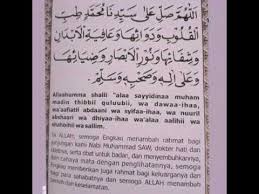 اللّٰهُمَّ صَلِّ عَلَى سَيِّدِنَا مُحَمَّدٍ طِبِّ
الْقُلُوْبِ وَدَوَائِهَا وَعَافِيَةِ الْاَبْدَانِ
وَشِفَائِهَا وَنُوْرِ الْاَبْصَارِ وَضِيَائِهَا
وَعَلَى اٰلِهِ وَصَحْبِهِ وَسَلِّمْ.
Allaahumma shalli 'alaa sayyidinaa muham
madin thibbil quluubii, wa dawaa-ihaa,
wa'aafiatil abdaani wa syifaa-ihaa, wa nuuril
abshaari wa dhiyaa-ihaa wa'alaa aalihii wa
shahbihii wa sallim.
Ya ALLAH, semoga Engkau menambah rahmat bagi
junjungan kami Nabi Muhammad SAW, dokter hati dan
obatnya, serta obat untuk badan, dan menyembuhkannya,
dan cahaya mata dengan penglihatannya, semoga
Engkau memberikan juga rahmat bagi keluarganya dan
para sahabatnya dan semoga ALLAH menambah
dan keselamatan.